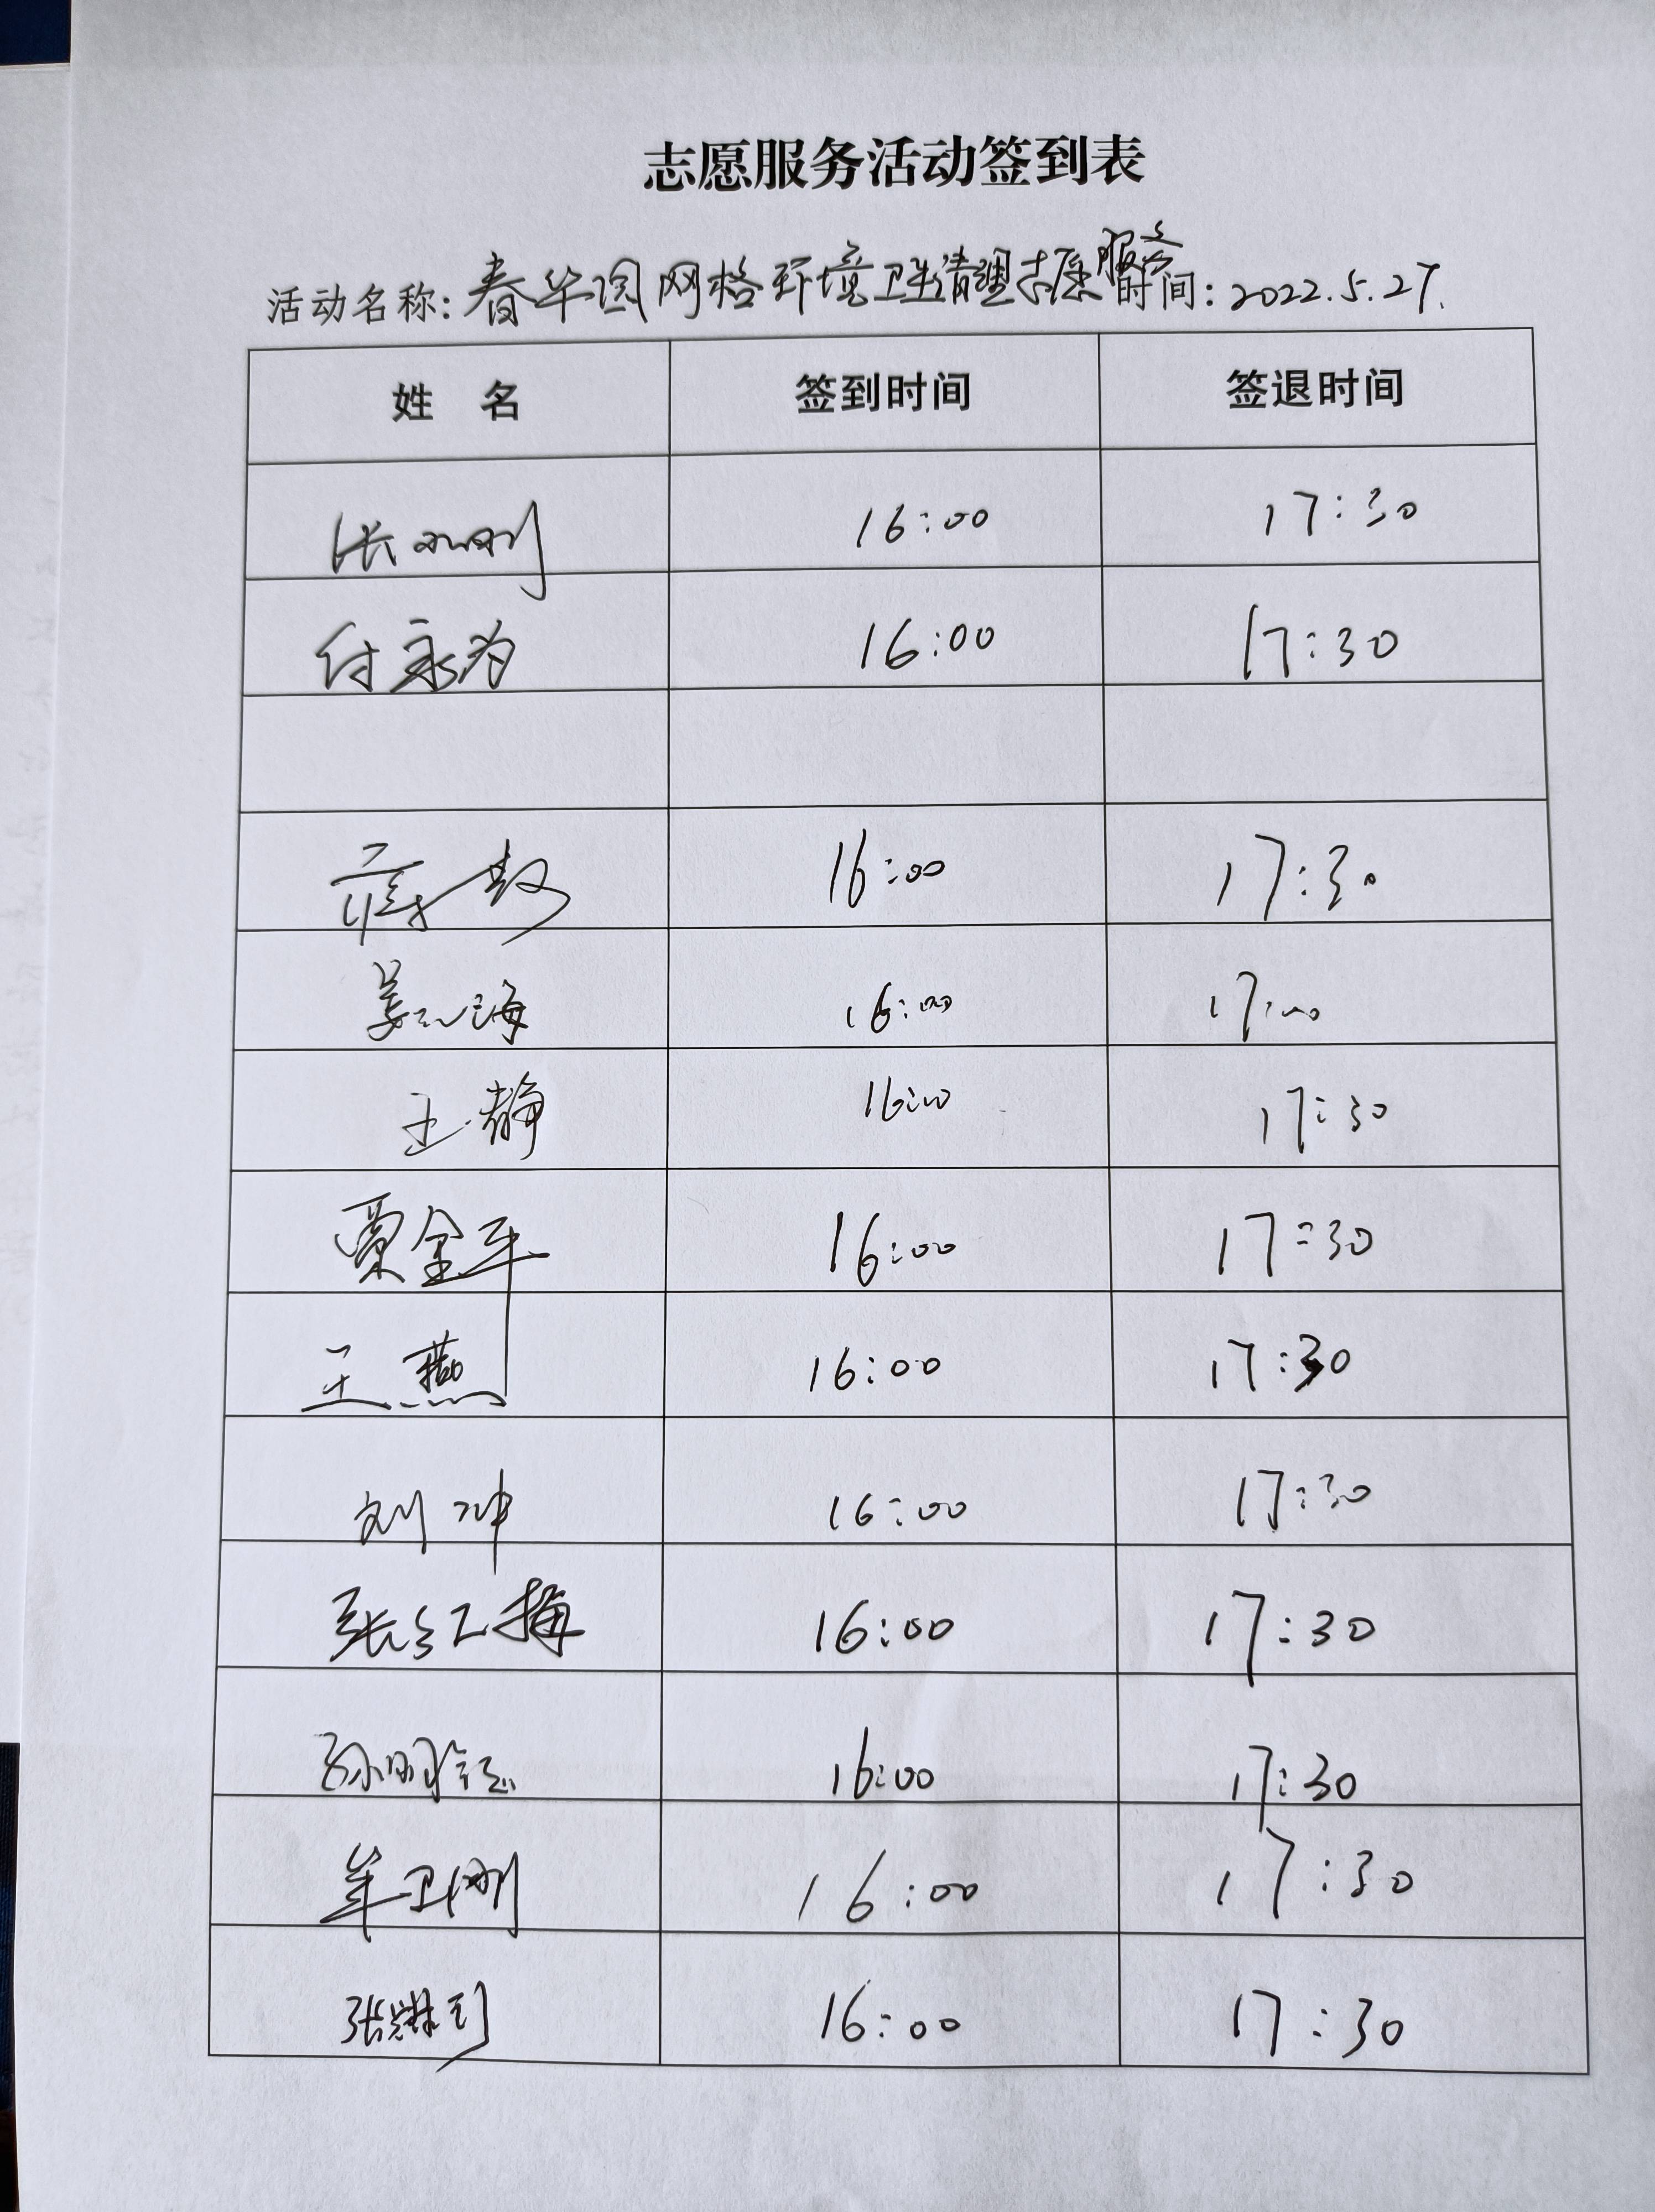 志愿服务活动签到表
活动名称：春华园网格环境卫生清理志愿服务 时间：2022.5.27.
姓 名 签到时间 签退时间
16:00 17:30
付永为 16:00 17:30
蒋 16:00 17:30
姜 海 16:00 17:00
王静 16:00 17:30
贾金平 16:00 17:30
王燕 16:00 17:30
刘冲 16:00 17:30
张红梅 16:00 17:30
孙明 16:00 17:30
牟卫刚 16:00 17:30
张 16:00 17:30